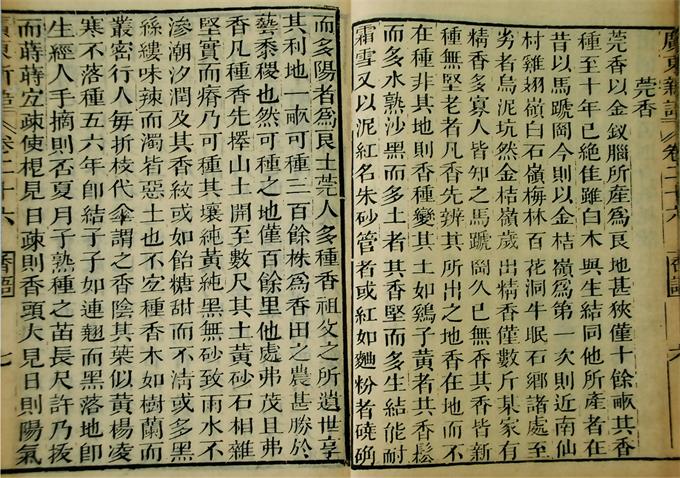 廣東新語 卷二十六 香語 六
莞香
莞香以金釵腦所產為良地甚狹僅十餘畝其香
種至十年已絕佳雖白木與生結同他所產者在
昔以馬蹏岡今則以金桔嶺為第一次則近南仙
村雞翅嶺白石嶺梅林百花洞牛眠石鄉諸處至
劣者烏泥坑然金桔嶺歲出精香僅數斤某家有
精香多寡人皆知之馬蹏岡久已無香其香皆新
種無堅老者凡香先辨其所出之地香在地而不
在種非其地則香種變其土如雞子黃者其香鬆
而多水熟沙黑而多土者其香堅而多生結能耐
霜雪又以泥紅名朱砂管者或紅如麯粉者磽确
而多陽者為良土莞人多種香祖父之所遺世享
其利地一畝可種三百餘株為香田之農甚勝於
藝黍稷也然可種之地僅百餘里他處弗茂且弗
香凡種香先擇山土開至數尺其土黃砂石相雜
堅實而瘠乃可種其壤純黃純黑無砂致雨水不
滲潮汐潤及其香紋或如飴糖甜而不清或多黑
絲縷味辣而濁皆惡土也不宜種香木如樹蘭而
叢密行人每折枝代傘謂之香陰其葉似黃楊凌
寒不落種五六年即結子子如連翹而黑落地即
生經人手摘則否夏月子熟種之苗長尺許乃拔
而蒔蒔宜疎使根見日疎則香頭大見日則陽氣
廣東新語 卷二十六 香語 七